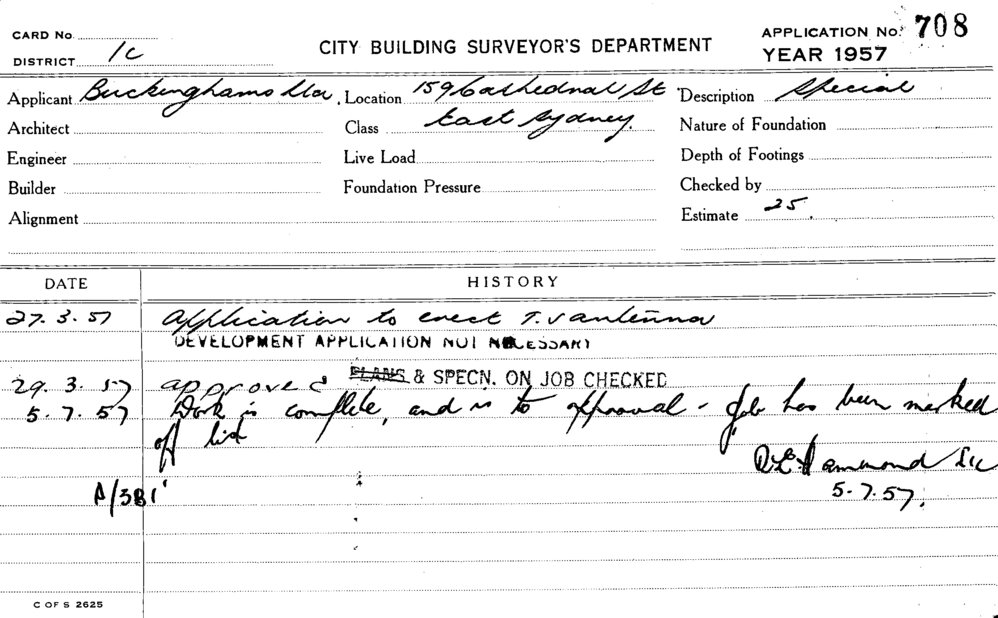 CARD No.
APPLICATION No. 708
CITY BUILDING SURVEYOR'S DEPARTMENT
DISTRICT 1c
YEAR 1957
Applicant Buckinghams Location 159 Cathedral St Description Special
Architect Class East Sydney. Nature of Foundation
Engineer Live Load Depth of Footings
Builder Foundation Pressure Checked by
Alignment Estimate 25.
DATE HISTORY
27.3.57 Application to erect T.V antenna
DEVELOPMENT APPLICATION NOT NECESSARY
29.3.57 approved PLANS & SPECN. ON JOB CHECKED
5.7.57 Work is complete, and is to approval - Job has been marked
off list
Hammond
5.7.57.
C OF S 2625